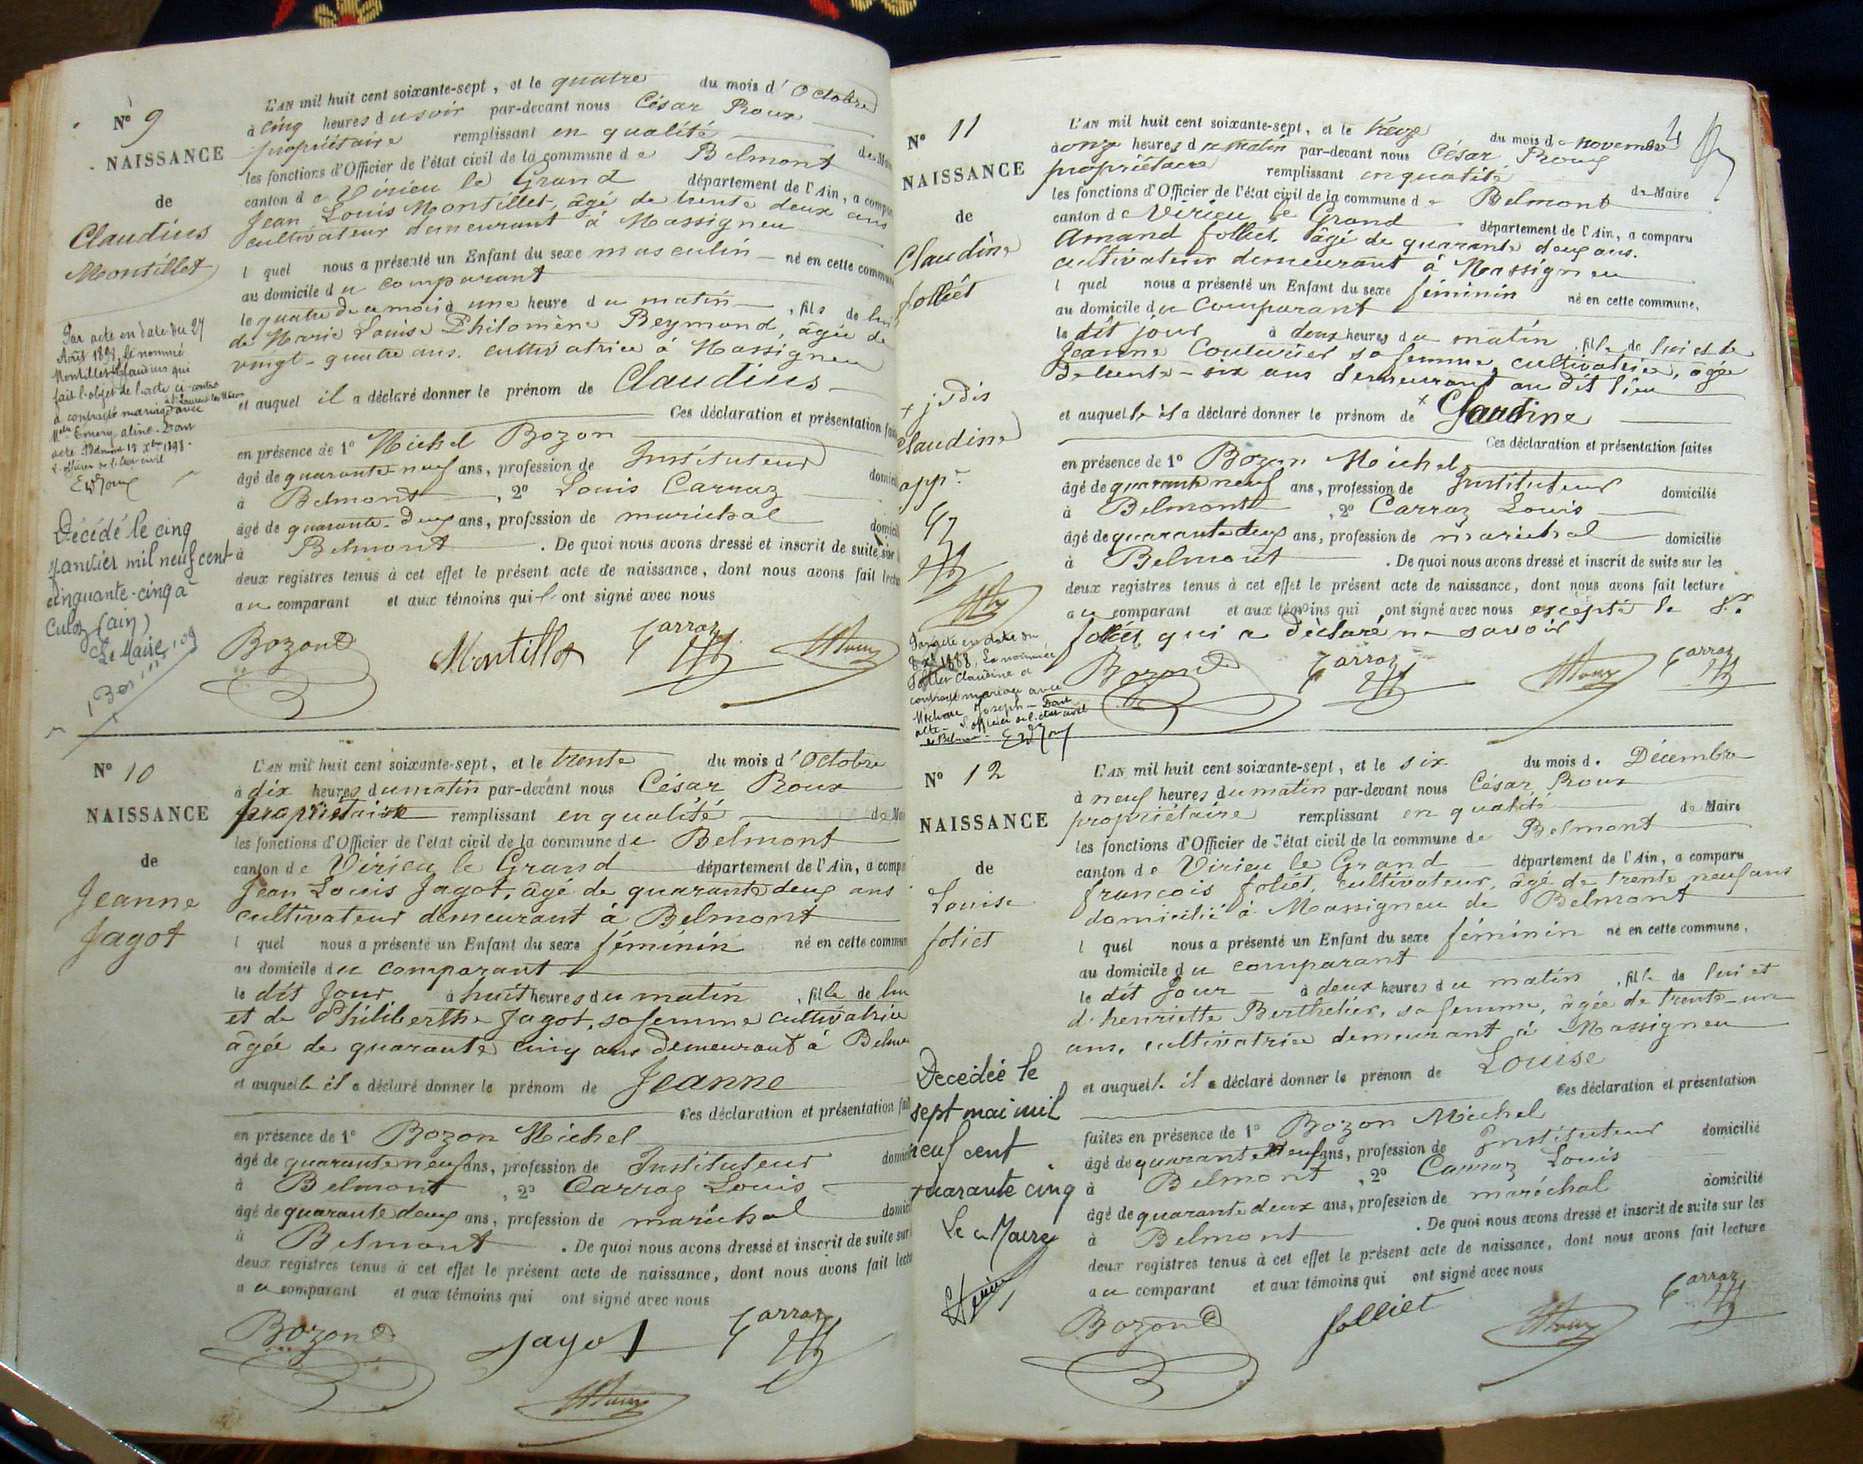 N° 9
NAISSANCE
de
Claudius
Montillet
L'AN mil huit cent soixante-sept, et le quatre du mois d'Octobre
à cinq heures du soir par-devant nous César Roux
propriétaire remplissant en qualité de
les fonctions d'Officier de l'état civil de la commune de Belmont
canton de Virieu le Grand département de l'Ain, a
Jean Louis Montillet, âgé de trente deux ans
cultivateur demeurant à Massigneu
lequel nous a présenté un Enfant du sexe masculin né en cette
au domicile du comparant
le quatre de ce mois à une heure du matin, fils de lui
de Marie Louise Philomène Reymond, âgée de
vingt-quatre ans. cultivatrice à Massigneu
et auquel il a déclaré donner le prénom de Claudius
Ces déclaration et présentation
en présence de 1° Michel Bozon
âgé de quarante neuf ans, profession de Instituteur
à Belmont, 2° Louis Carraz
âgé de quarante-deux ans, profession de maréchal
à Belmont. De quoi nous avons dressé et inscrit de suite sur
deux registres tenus à cet effet le présent acte de naissance, dont nous avons fait
au comparant et aux témoins qui ont signé avec nous
Bozon Montillet Carraz Roux
Par acte en date du 27
Août 1898, le nommé
Montillet Claudius qui
fait l'objet de l'acte ci-contre
a contracté mariage avec
Emery Aline. Dont
acte
L'officier de l'état civil
Décédé le cinq
janvier mil neuf cent
cinquante-cinq à
Culoz (Ain)
Le Maire
N° 10
NAISSANCE
de
Jeanne
Jagot
L'AN mil huit cent soixante-sept, et le trente du mois d'Octobre
à dix heures du matin par-devant nous César Roux
propriétaire remplissant en qualité de
les fonctions d'Officier de l'état civil de la commune de Belmont
canton de Virieu le Grand département de l'Ain, a
Jean Louis Jagot, âgé de quarante deux ans
cultivateur demeurant à Belmont
lequel nous a présenté un Enfant du sexe féminin né en cette
au domicile du comparant
le dit Jour à huit heures du matin, fille de lui
et de Philiberthe Jagot, sa femme cultivatrice
âgée de quarante cinq ans demeurant à
et auquelle il a déclaré donner le prénom de Jeanne
Ces déclaration et présentation
en présence de 1° Bozon Michel
âgé de quarante neuf ans, profession de Instituteur
à Belmont, 2° Carraz Louis
âgé de quarante deux ans, profession de maréchal
à Belmont. De quoi nous avons dressé et inscrit de suite sur
deux registres tenus à cet effet le présent acte de naissance, dont nous avons fait
au comparant et aux témoins qui ont signé avec nous
Bozon Jagot Carraz
Roux
N° 11
NAISSANCE
de
Claudine
folliet
L'AN mil huit cent soixante-sept, et le treize du mois de novembre
à onze heures du matin par-devant nous César Roux
propriétaire remplissant en qualité de Maire
les fonctions d'Officier de l'état civil de la commune de Belmont
canton de Virieu le Grand département de l'Ain, a comparu
Amand folliet, âgé de quarante deux ans.
cultivateur demeurant à Massigneu
lequel nous a présenté un Enfant du sexe féminin né en cette commune,
au domicile du Comparant
le dit jour à deux heures du matin, fille de lui et de
Jeanne Couturier sa femme, cultivatrice, âgée
de trente-six ans demeurant au dit lieu
et auquelle il a déclaré donner le prénom de x Claudine
Ces déclaration et présentation faites
en présence de 1° Bozon Michel
âgé de quarante neuf ans, profession de Instituteur domicilié
à Belmont, 2° Carraz Louis
âgé de quarante deux ans, profession de maréchal domicilié
à Belmont. De quoi nous avons dressé et inscrit de suite sur les
deux registres tenus à cet effet le présent acte de naissance, dont nous avons fait lecture
au comparant et aux témoins qui ont signé avec nous excepté le Sr.
folliet qui a déclaré ne savoir
Bozon Carraz Roux Carraz
x je dis
Claudine
Par acte en date du
1888, La nommée
Folliet Claudine a
contracté mariage avec
Joseph - Dont
acte. L'officier de l'état civil
de Belmont
N° 12
NAISSANCE
de
Louise
foliet
L'AN mil huit cent soixante-sept, et le six du mois de Décembre
à neuf heures du matin par-devant nous César Roux
propriétaire remplissant en qualité de Maire
les fonctions d'Officier de l'état civil de la commune de Belmont
canton de Virieu le Grand département de l'Ain, a comparu
francois foliet, cultivateur, âgé de trente neuf ans
domicilié à Massigneu de Belmont
lequel nous a présenté un Enfant du sexe féminin né en cette commune,
au domicile du comparant
le dit Jour à deux heures du matin, fille de lui et
d'henriette Berthelier, sa femme, âgée de trente-un
ans, cultivatrice demeurant à Massigneu
et auquelle il a déclaré donner le prénom de Louise
Ces déclaration et présentation
faites en présence de 1° Bozon Michel
âgé de quarante neuf ans, profession de Instituteur domicilié
à Belmont, 2° Carraz Louis
âgé de quarante deux ans, profession de maréchal domicilié
à Belmont. De quoi nous avons dressé et inscrit de suite sur les
deux registres tenus à cet effet le présent acte de naissance, dont nous avons fait lecture
au comparant et aux témoins qui ont signé avec nous
Bozon folliet Roux Carraz
Decédée le
sept mai mil
neuf cent
quarante cinq
Le Maire